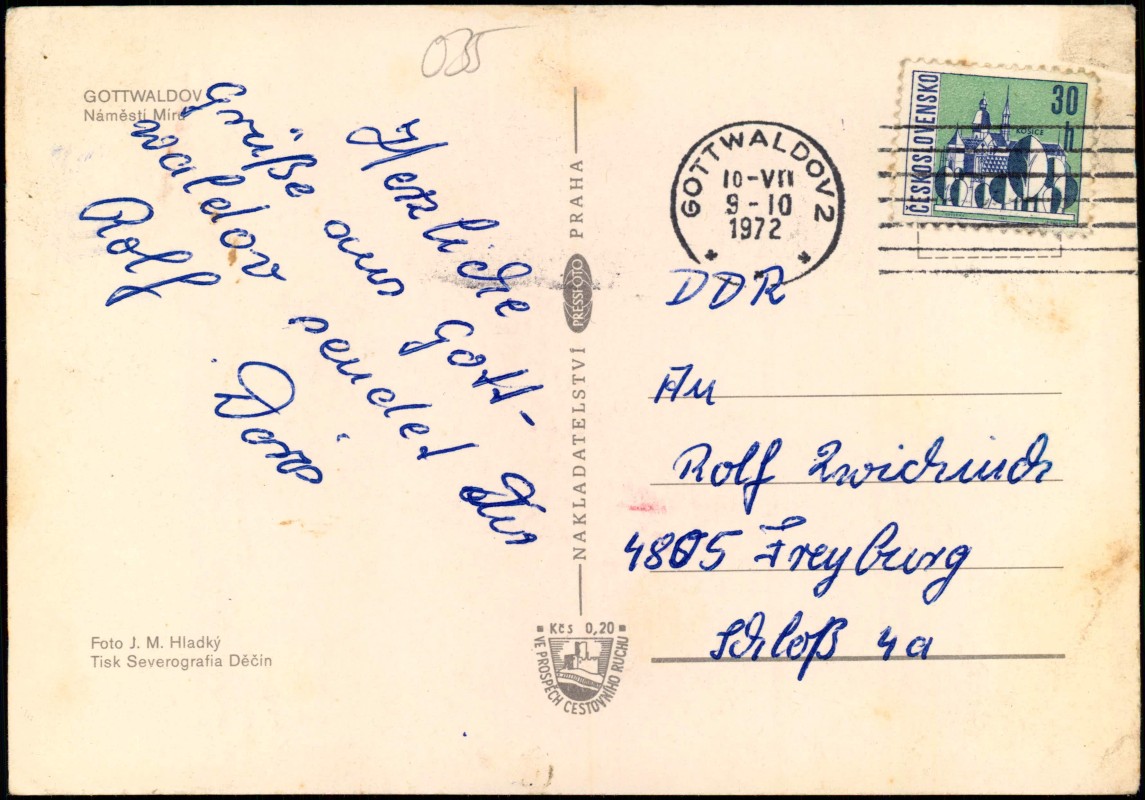 085
GOTTWALDOV
Náměstí Míru
Herzliche
Grüße aus Gott-
waldov sendet Dir
Rolf Doris
Foto J. M. Hladký
Tisk Severografia Děčín
NAKLADATELSTVÍ PRESSFOTO PRAHA
Kčs 0,20
VE PROSPĚCH CESTOVNÍHO RUCHU
GOTTWALDOV 2
10-VII
9-10
1972
ČESKOSLOVENSKO
30 h
KOŠICE
DDR
An
Rolf
4805 Freyburg
Schloß 4a